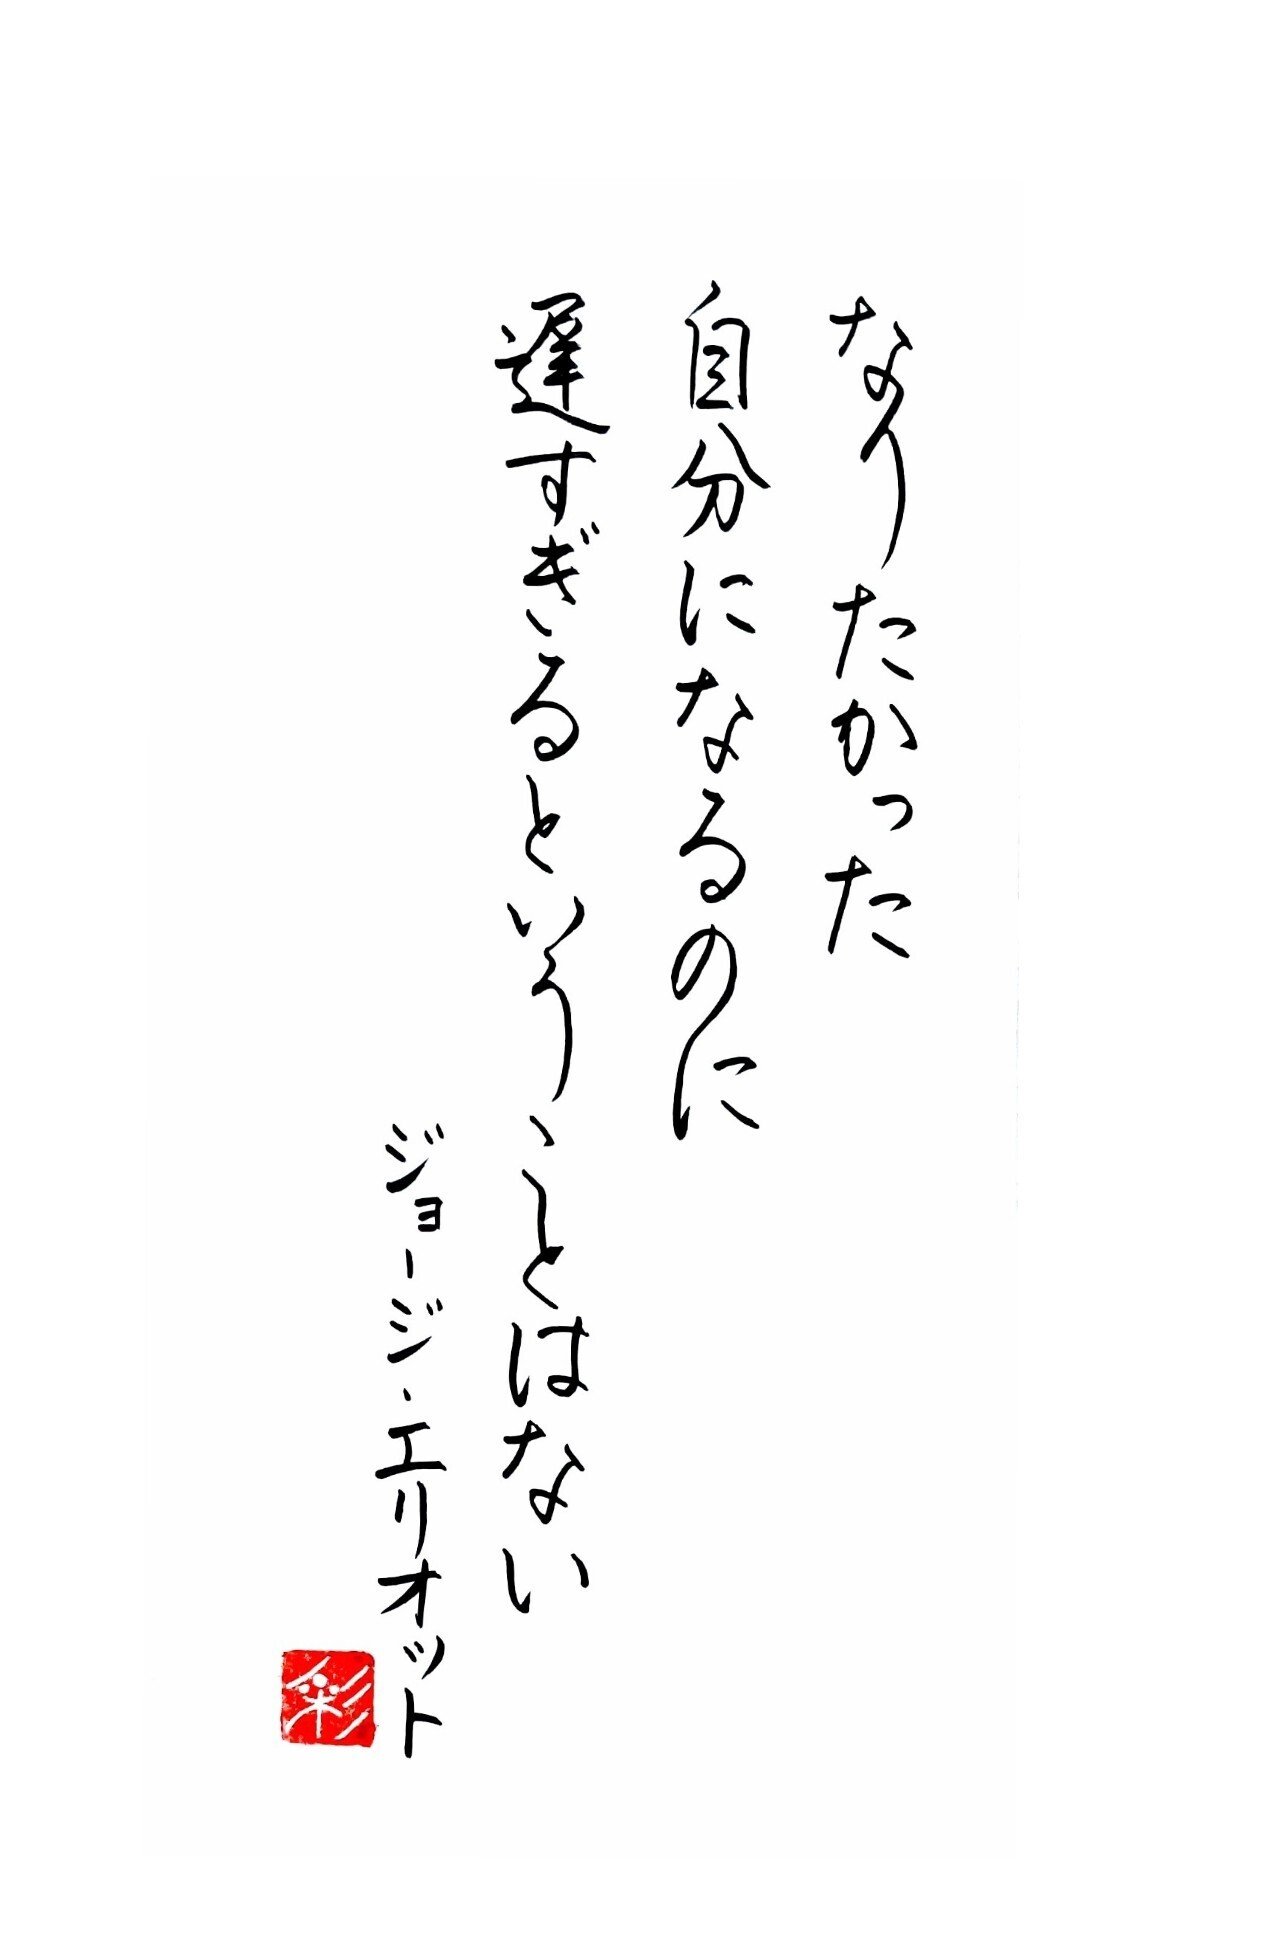 なりたかった
自分になるのに
遅すぎるということはない
ジョージ・エリオット
彩